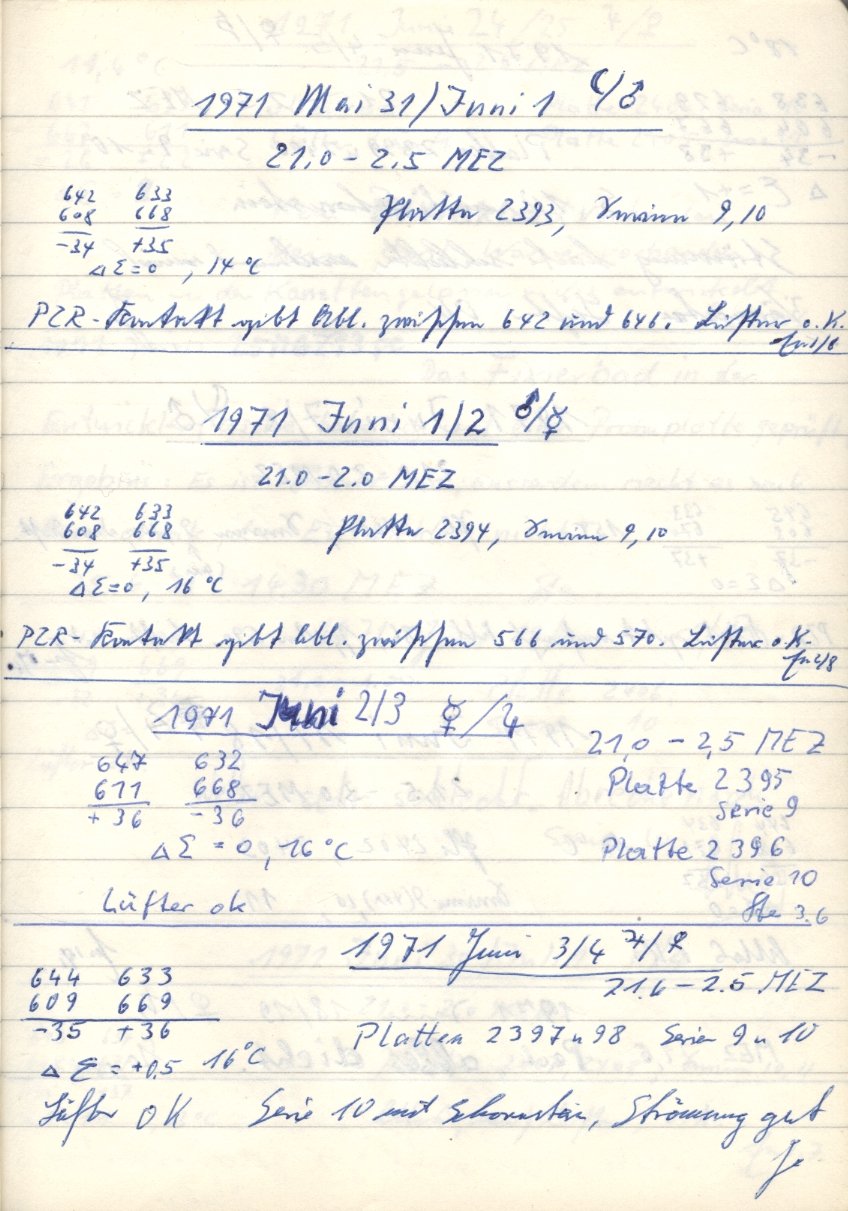 1971 Mai 31/Juni 1 ☾/♂
21.0 - 2.5 MEZ
642 633
608 668
-34 +35
Platte 2393, Serien 9,10
ΔΣ=0, 14°C
PZR-Kontakt gibt Abl. zwischen 642 und 646. Lüfter o.K.
1971 Juni 1/2 ♂/☿
21.0-2.0 MEZ
642 633
608 668
-34 +35
Platte 2394, Serien 9,10
ΔΣ=0, 16°C
PZR-Kontakt gibt Abl. zwischen 566 und 570. Lüfter o.K.
1971 Juni 2/3 ☿/♃
21,0 - 2,5 MEZ
647 632
611 668
+36 -36
Platte 2395
Serie 9
Platte 2396
Serie 10
ΔΣ = 0, 16°C
Lüfter ok
3.6
1971 Juni 3/4 ♃/♀
21.6 - 2.5 MEZ
644 633
609 669
-35 +36
Platten 2397 u 98 Serien 9 u 10
ΔΣ = +0.5 16°C
Lüfter OK Serie 10 mit Schornstein, Strömung gut